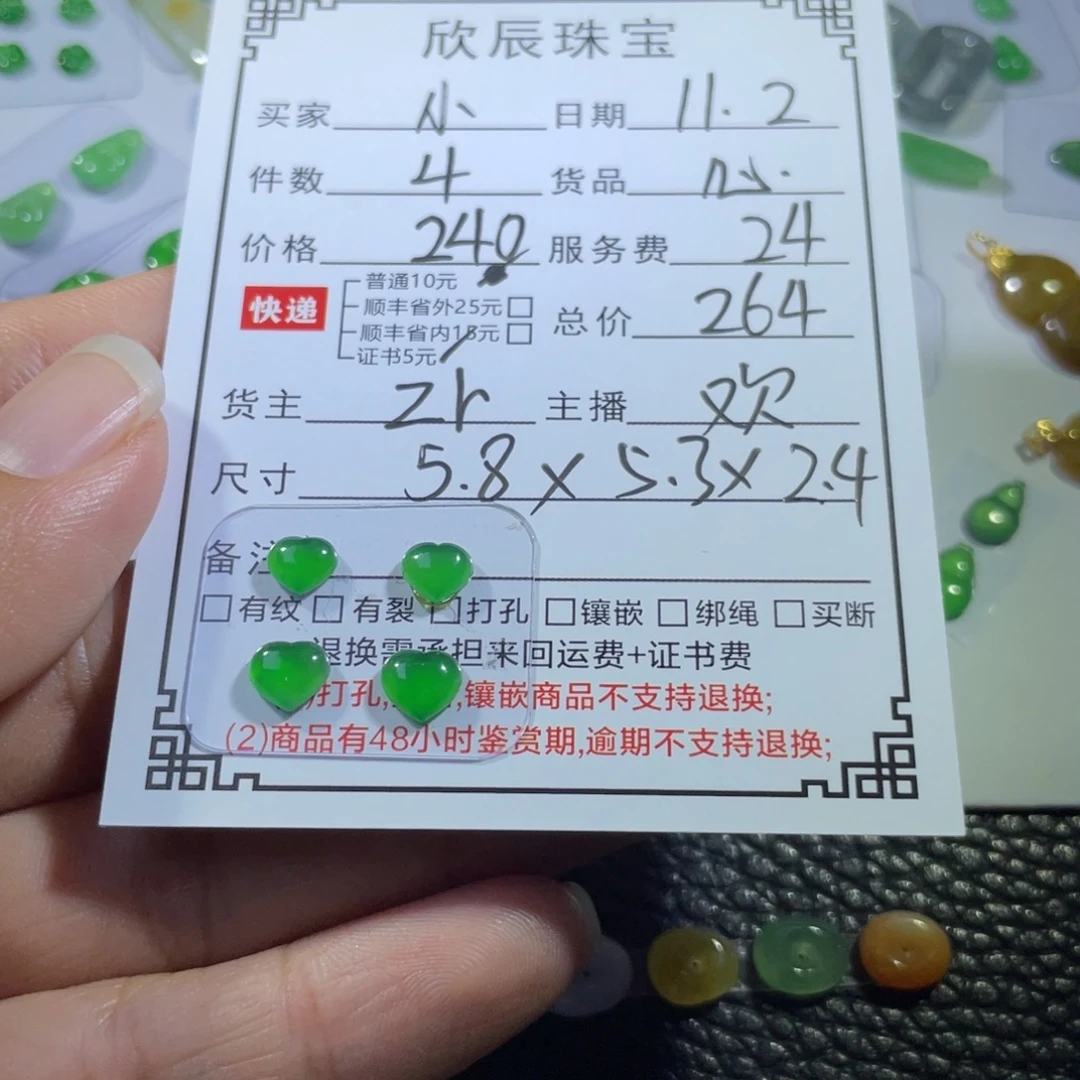 欣辰珠宝
买家 小 日期 11.2
件数 4 货品 心.
价格 240 服务费 24
快递 普通10元
顺丰省外25元
顺丰省内18元
证书5元
总价 264
货主 Zh 主播 欢
尺寸 5.8 x 5.3 x 2.4
备注
有纹 有裂 打孔 镶嵌 绑绳 买断
退换需承担来回运费+证书费
打孔, 镶嵌商品不支持退换;
(2)商品有48小时鉴赏期,逾期不支持退换;